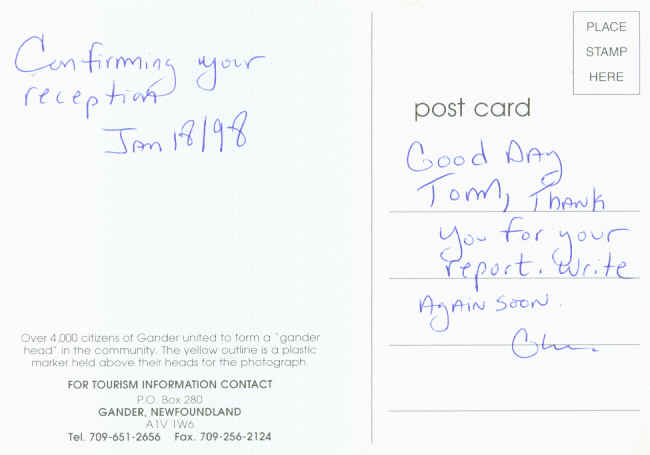 Confirming your
reception
Jan 18/98
Over 4,000 citizens of Gander united to form a "gander
head" in the community. The yellow outline is a plastic
marker held above their heads for the photograph.
FOR TOURISM INFORMATION CONTACT
P.O. Box 280
GANDER, NEWFOUNDLAND
A1V 1W6
Tel. 709-651-2656 Fax. 709-256-2124
PLACE
STAMP
HERE
post card
Good Day
Tom, Thank
you for your
report. Write
Again soon.